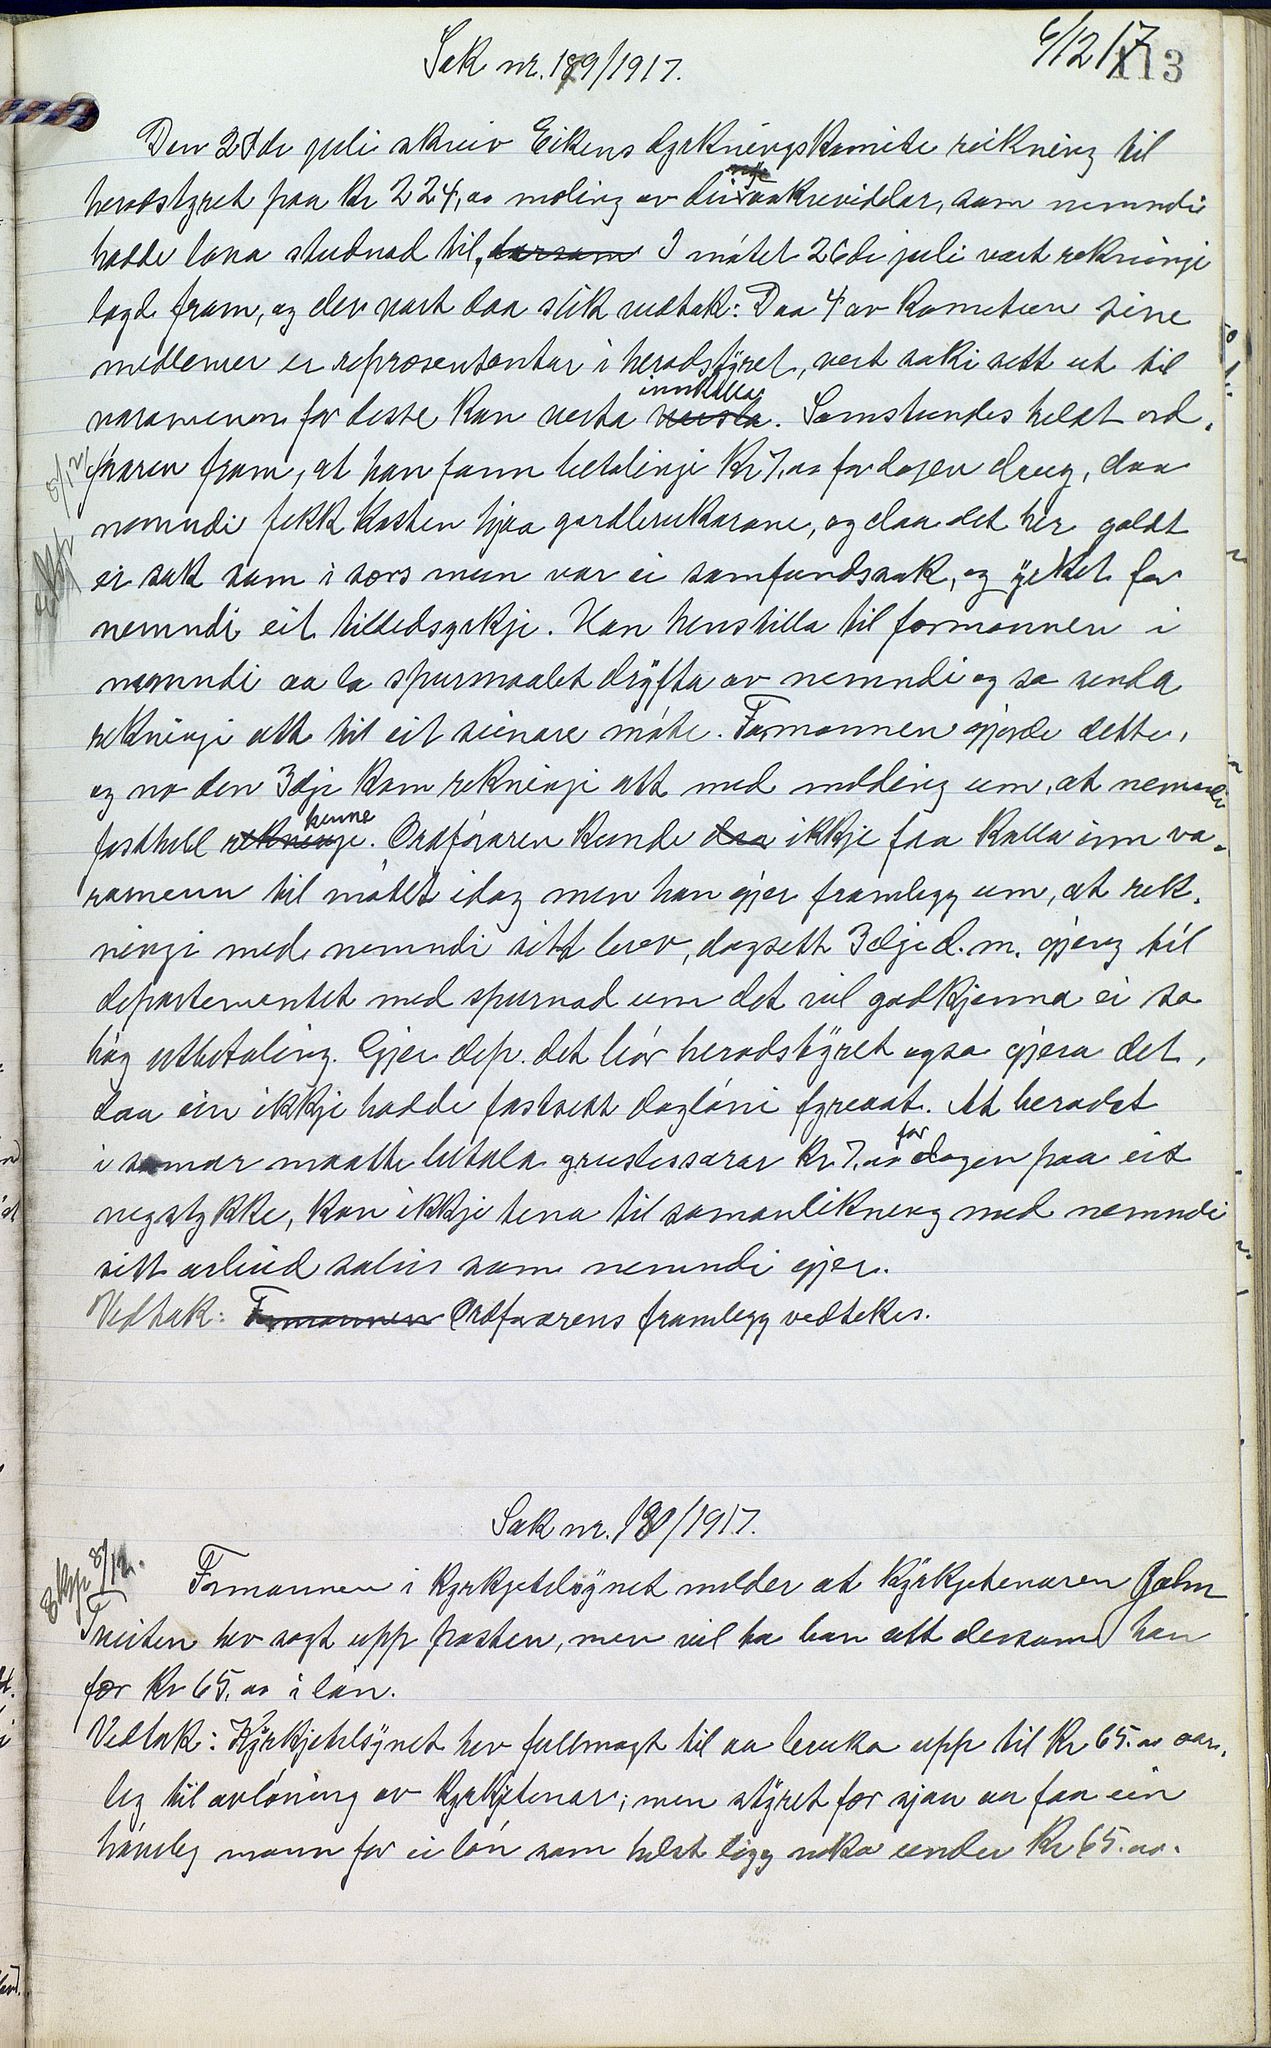 6/12/17
113
Sak nr. 179/1917.
Den 23de juli skreiv Eikens dyrkningskomite reikning til
heradstyret paa Kr 224,00 moling av dei nye aakreviddar, som nemndi
hadde lova studnad til, darsom I mótet 26de juli vart rekningi
lagd fram, og der vart daa slik vedtak: Daa 4 av Kometeen sine
medlemer er representantar i heradstýret, vert saki sett ut til
varamenn for desse kan verta innkalla. Samstundes heldt ord-
føraren fram, at han fann betalingi Kr 7,00 for dagen drug, daa
nemndi fekk kosten hjaa gardbrukarane, og daa det her galdt
ei sak som i sers mun var ei samfundssak, og yrket for
nemndi eit tilledsyrkje. Han henstilla til formannen i
nemndi aa la spursmaalet drýfta av nemndi og so senda
rekningi att til eit seinare móte. Formannen gjorde dette,
og no den 3dje kom rekningi att med melding um, at nemndi
fasthell rekningje henne. Ordfóraren kunde daa ikkje faa kalla inn va-
ramenn til mótet idag men han gjer framlegg um, at rek-
ningi med nemndi sitt brev, dagsett 3dje d.m. gjeng til
departementet med spurnad um det vil godkjenna ei so
hóg utbetaling. Gjer dep. det bór heradstýret ogso gjera det,
daa ein ikkje hadde fastsett daglóni fyreaat. At heradet
i somar maatte betala gruslessarar Kr 7,00 for dagen paa eit
vegstykke, kan ikkje tena til samanlikning med nemndi
sitt arbeid soleis som nemndi gjer.
Vedtak: Formannen Ordførarens framlegg vedtekes.
Sak nr. 180/1917.
Ekp 8/12.
Formannen i kyrkjetilsýnet melder at kýrkjetenaren Jahn
Tveiten hev sagt upp posten, men vil ha han att dersom han
fær Kr 65,00 i lón.
Vedtak: Kýrkjetilsýnet hev fullmagt til aa bruka upp til Kr 65.00 aar-
leg til avlóning av kyrkjetenar; men stýret fær sjaa aa faa ein
hóveleg mann for ei lón som helst ligg noko under Kr 65.00.